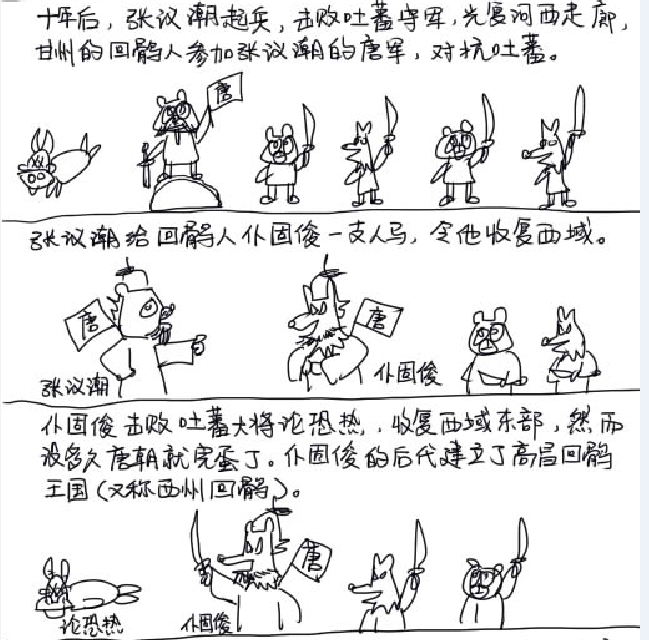 十年后，张议潮起兵，击败吐蕃守军，光复河西走廊，
甘州的回鹘人参加张议潮的唐军，对抗吐蕃。
唐
张议潮给回鹘人仆固俊一支人马，令他收复西域。
唐
唐
张议潮
仆固俊
仆固俊击败吐蕃大将论恐热，收复西域东部，然而
没多久唐朝就完蛋了。仆固俊的后代建立了高昌回鹘
王国（又称西州回鹘）。
唐
论恐热
仆固俊